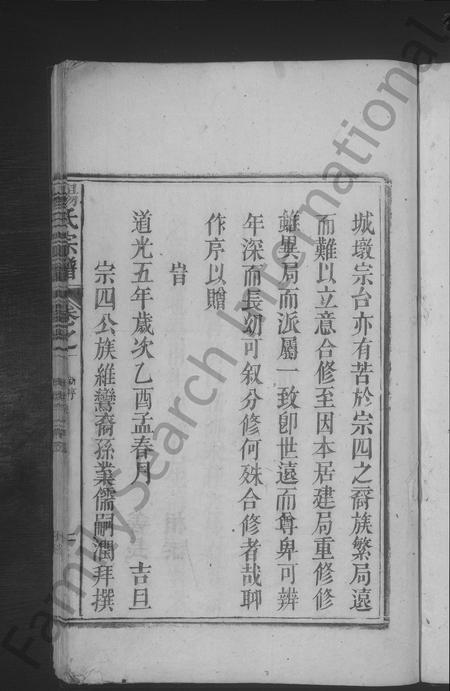 城墩宗台亦有苦於宗四之裔族繁局遠
而難以立意合修至因本居建局重修修
雖異局而派屬一致卽世遠而尊卑可辨
年深而長幼可叙分修何殊合修者哉聊
作序以贈
旹
道光五年歲次乙酉孟春月 吉旦
宗四公族維鸞裔孫業儒嗣潤拜撰
氏宗譜
卷之
FamilySearch International